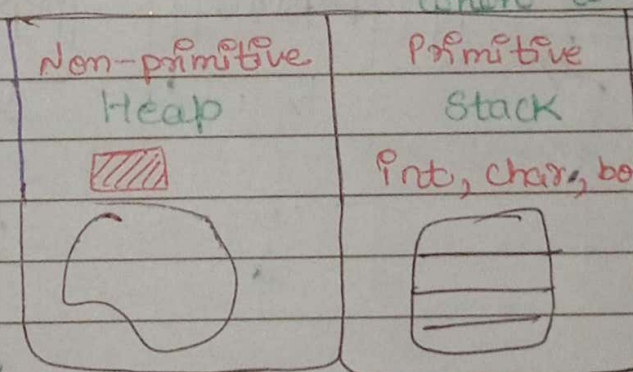 Non-primitive Primitive
Heap Stack
int, char, bo